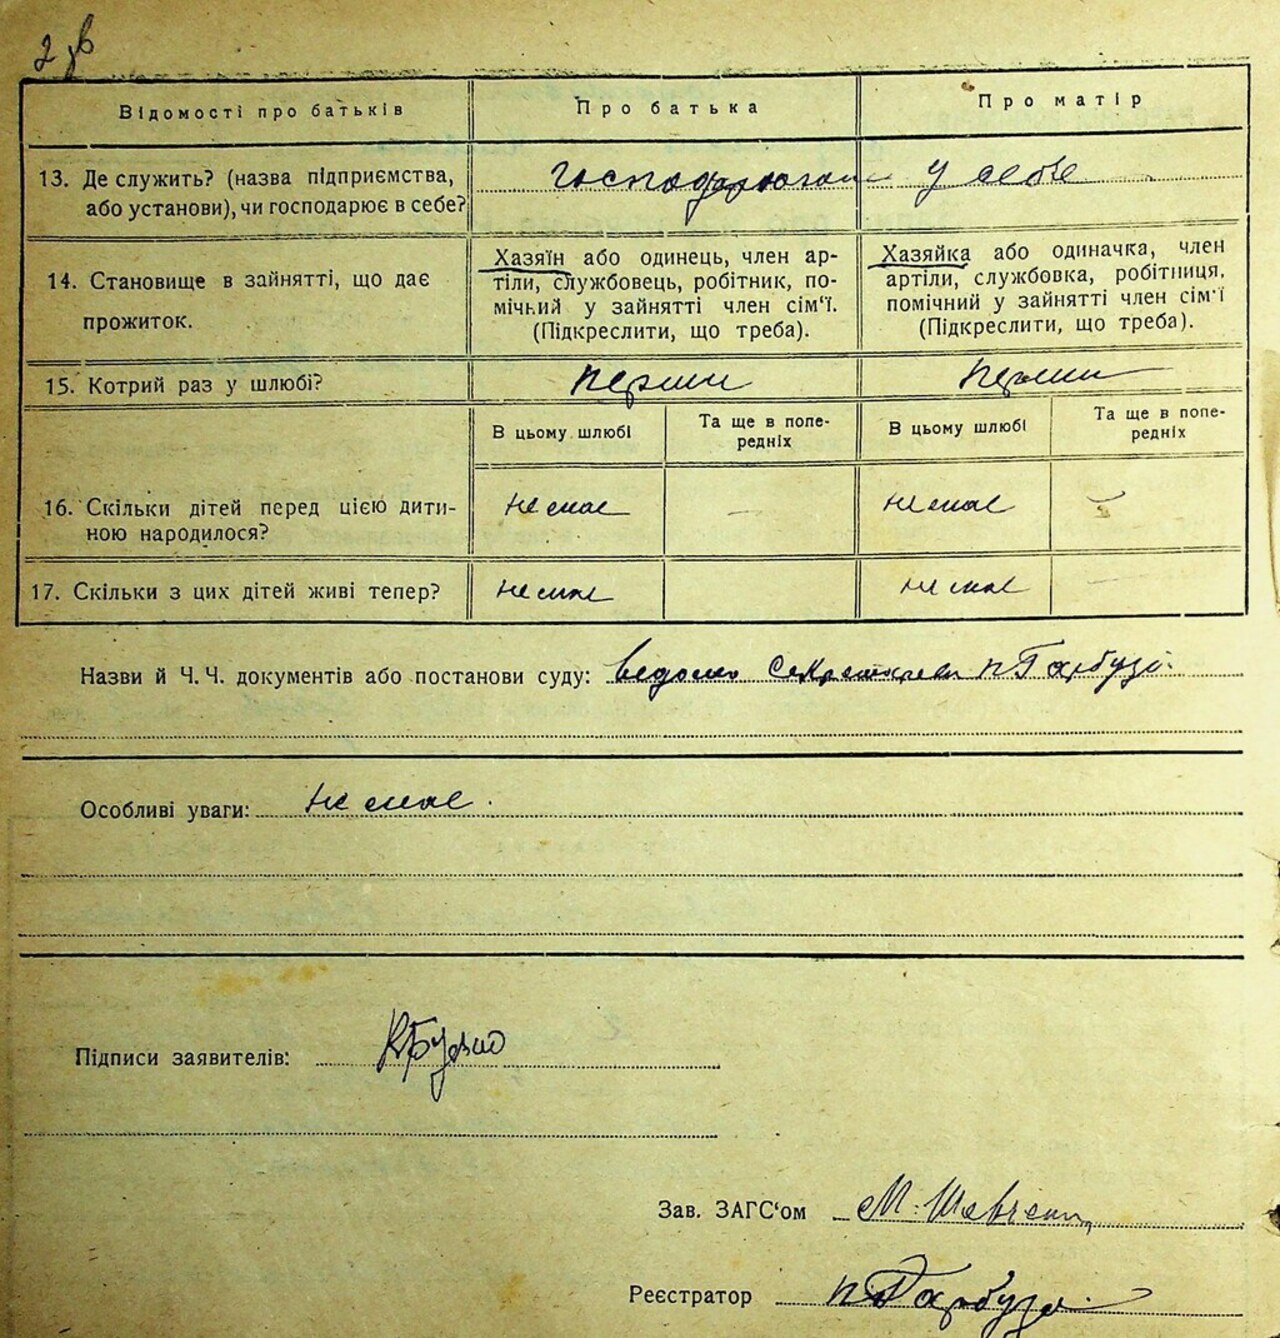 2 зв
Відомості про батьків
Про батька
Про матір
13. Де служить? (назва підприємства,
або установи), чи господарює в себе?
господарюють у себе
14. Становище в зайнятті, що дає
прожиток.
Хазяїн або одинець, член ар-
тіли, службовець, робітник, по-
мічний у зайнятті член сім‘ї.
(Підкреслити, що треба).
Хазяйка або одиначка, член
артіли, службовка, робітниця,
помічний у зайнятті член сім‘ї
(Підкреслити, що треба).
15. Котрий раз у шлюбі?
перший
перший
В цьому шлюбі
Та ще в попе-
редніх
В цьому шлюбі
Та ще в попе-
редніх
16. Скільки дітей перед цією дити-
ною народилося?
немає
—
немає
—
17. Скільки з цих дітей живі тепер?
немає
немає
—
Назви й Ч. Ч. документів або постанови суду: відомо Секретареві П Гарбузі.
Особливі уваги: немає.
Підписи заявителів:
Зав. ЗАГС‘ом М. Шевченк
Реєстратор П Гарбуза